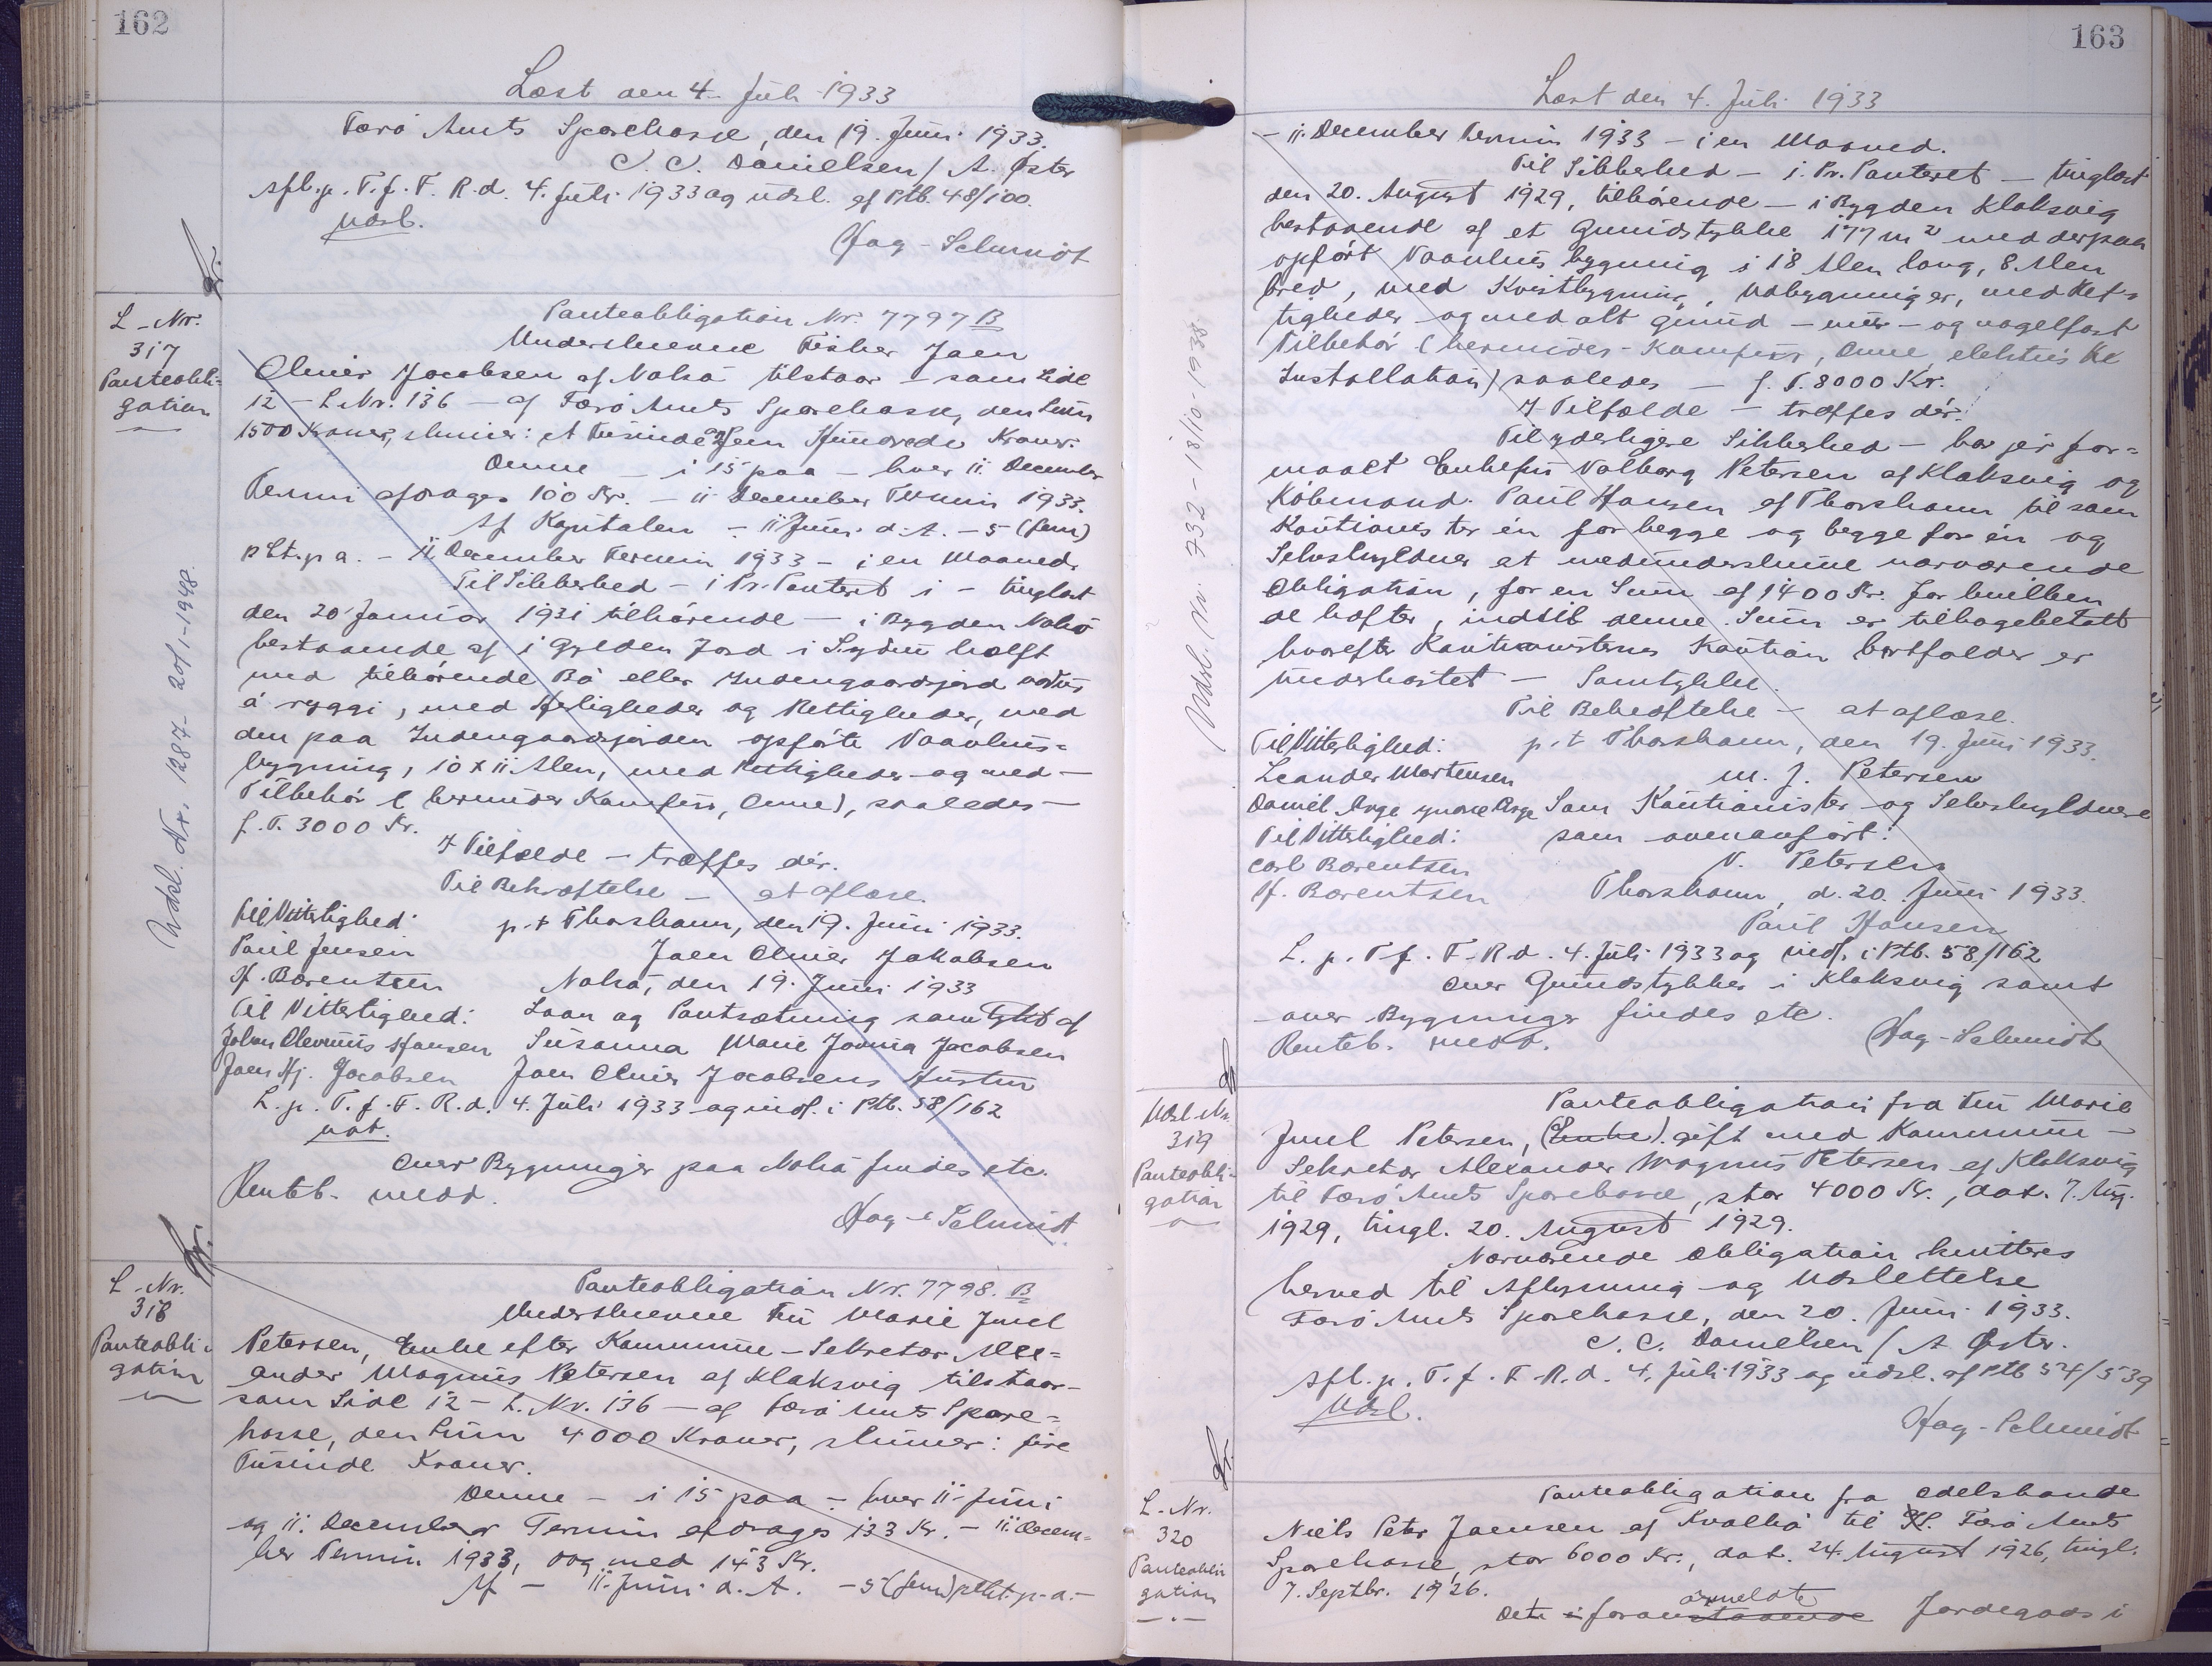 162
Læst den 4. Juli 1933
Færø Amts Sparekasse, den 19. Juni 1933.
C. C. Danielsen / A. Øster
Afl. p. T. f. F. R. d. 4. Juli 1933 og udsl. af Ptb. 48/100.
Udsl.
Hag-Schmidt
L-Nr.
317
Panteobli-
gation
Panteobligation Nr. 7797 B
Underskrevne Fisker Joen
Oliver Jacobsen af Nolsø tilstaar - som Side
12 - L. Nr. 136 - af Færø Amts Sparekasse, den Sum
1500 Kroner, skriver: et Tusinde og fem Hundrede Kroner.
Denne - i 15 paa - hver 11 December
Termin afdrages 100 Kr. - 11 December Termin 1933.
Af Kapitalen - 11 Juni d. A. - 5 (fem)
pCt. p a. - 11 December Termin 1933 - i en Maaned.
Til Sikkerhed - i Pr. Panteret i - tinglæst
den 20 Januar 1931 tilhørende - i Bygden Nolsø
bestaaende af 1 Gylden Jord i Sydru hælft
med tilhørende Bø eller Indengaardsjord
á ryggi, med Herligheder og Rettigheder, med
den paa Indengaardsjorden opførte Vaanhus-
bygning, 10 x 11 Alen, med Rettigheder og med -
Tilbehør (herunder Komfur, Ovne), saaledes -
f. T. 3000 Kr.
I Tilfælde - træffes dér.
Til Bekræftelse - at aflæse.
Til Vitterlighed: p. t Thorshavn, den 19. Juni 1933.
Paul Jensen Joen Oliver Jakobsen
H. Barentsen Nolsø, den 19. Juni 1933
Til Vitterlighed: Laan og Pantsætning samtykt af
Johan Clevinus Hansen Susanna Marie Jovina Jacobsen
Joen Hj. Jacobsen Joen Oliver Jacobsens Hustru
L. p. T. f. F. R. d. 4. Juli 1933 og indf. i Ptb. 58/162
not.
Over Bygninger paa Nolsø findes etc.
Renteb. medd.
Hag-Schmidt
Udsl. Nr. 1287 - 20/1-1948.
L-Nr.
318
Panteobli-
gation
Panteobligation Nr. 7798. B
Underskrevne Fru Marie Juul
Petersen, Enke efter Kommune-Sekretær Alex-
ander Magnus Petersen af Klaksvig tilstaar -
som Side 12 - L. Nr. 136 - af Færø Amts Spare-
kasse, den Sum 4000 Kroner, skriver: fire
Tusinde Kroner.
Denne - i 15 paa - hver 11 Juni
og 11. December Termin afdrages 133 Kr. - 11 Decem-
ber Termin 1933, dog med 143 Kr.
Af - 11. Juni d. A. - 5 (fem) pCt. p. a. -
163
Læst den 4. Juli 1933
- 11. December Termin 1933 - i en Maaned.
Til Sikkerhed - i. Pr. Panteret - tinglæst
den 20. August 1929, tilhørende - i Bygden Klaksvig
bestaaende af et Grundstykke 177 m2 med derpaa
opført Vaanhusbygning i 18 Alen lang, 8 Alen
bred, med Kvistbygning, Udbygninger, med Ret-
tigheder og med alt grund - mur - og nagelfast
Tilbehør (herunder Komfur, Ovne, elektrisk
Installation) saaledes - f. T. 8000 Kr.
I Tilfælde - træffes dér.
Til yderligere Sikkerhed - har jeg for-
maaet Enkefru Valborg Petersen af Klaksvig og
Købmand Paul Hansen af Thorshavn til som
Kautionister én for begge og begge for én og
Selvskyldner at medunderskrive nærværende
Obligation, for en Sum af 1400 Kr. for hvilken
de hæfter, indtil denne Sum er tilbagebetalt
hvorefter Kautionisternes Kaution bortfalder er
underkastet - Samtykke.
Til Bekræftelse - at aflæse.
Til Vitterlighed: p. t Thorshavn, den 19. Juni 1933.
Leander Mortensen M. J. Petersen
Daniel Arge Som Kautionister og Selvskyldnere
Til Vitterlighed: som ovenanført:
Carl Barentsen V. Petersen
H. Barentsen Thorshavn, d. 20. Juni 1933.
Paul Hansen
L. p. T. f. F. R. d. 4. Juli 1933 og indf. i Ptb. 58/162
Over Grundstykker i Klaksvig samt
over Bygninger findes etc.
Renteb. medd. Hag-Schmidt
Udsl. Nr. 732 - 18/10-1938.
Udsl. Nr.
319
Panteobli-
gation
Panteobligation fra Fru Marie
Juul Petersen, (Enke) gift med Kommune-
Sekretær Alexander Magnus Petersen af Klaksvig
til Færø Amts Sparekasse, stor 4000 Kr., dat. 7. Aug.
1929, tingl. 20. August 1929.
Nærværende Obligation kvitteres
herved til Aflysning og Udslettelse
Færø Amts Sparekasse, den 20. Juni 1933.
C. C. Danielsen / A Øster.
Afl. p. T. f. F. R. d. 4. Juli 1933 og udsl. af Ptb 54/539
Udsl.
Hag-Schmidt
L-Nr.
320
Panteobli-
gation
Panteobligation fra Odelsbonde
Niels Peter Joensen af Kvalbø til Færø Amts
Sparekasse, stor 6000 Kr., dat. 24. August 1926, tingl.
7. Septbr. 1926.
anmeldte
Det i foranstaaende Jordegods i